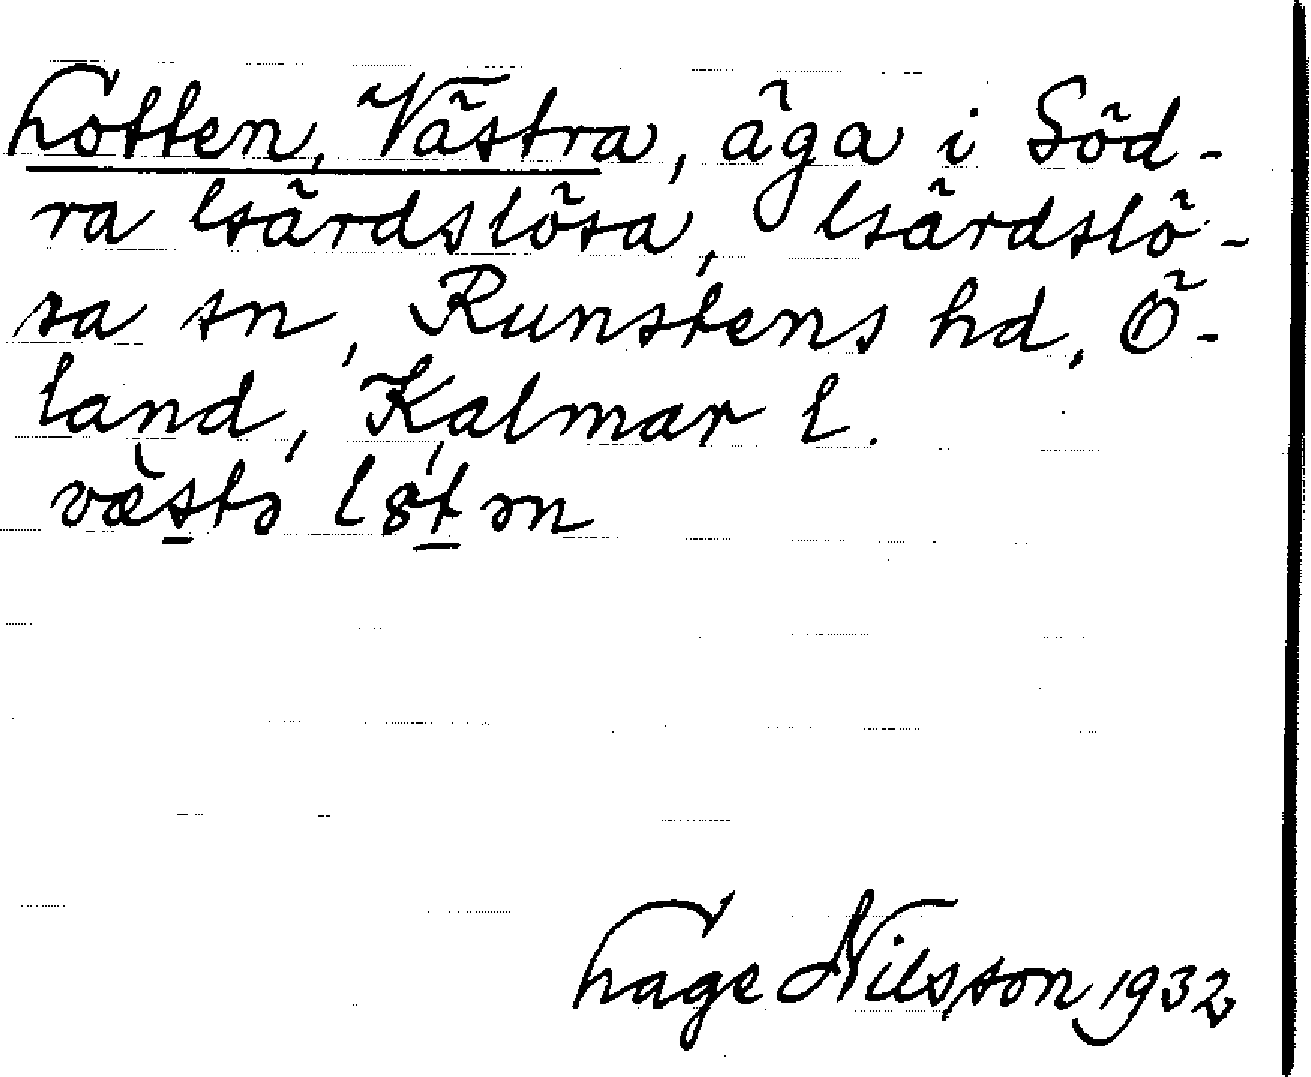 Lotten, Västra, äga i Söd-
ra Gärdslösa, Gärdslö-
sa sn, Runstens hd, Ö-
land, Kalmar l.
Lage Nilsson 1932